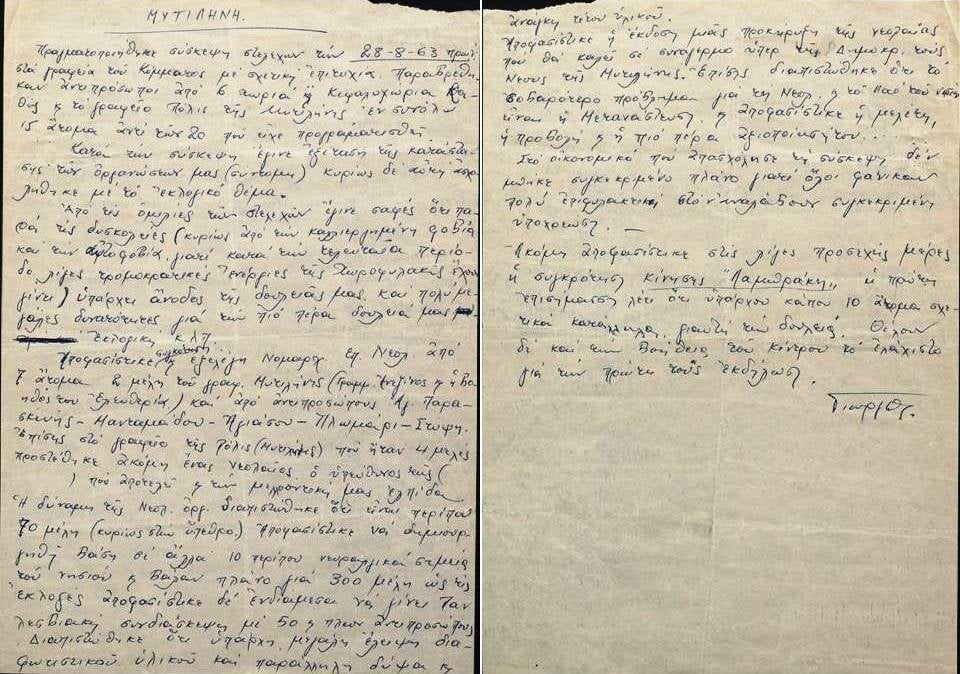 ΜΥΤΙΛΗΝΗ.
Πραγματοποιήθηκε σύσκεψη στελεχών τήν 28-8-63 πρωί
στά γραφεία του Κόμματος μέ σχετική ἐπιτυχία. Παραβρέθη-
καν ἀντιπρόσωποι ἀπό 6 χωριά ἤ Κεφαλοχώρια Κα-
θώς κ το γραφείο πόλις τῆς Μυτιλήνης ἐν συνόλω
15 ἄτομα ἀντί των 20 που είχε προγραμματισθή.
Κατά την σύσκεψη έγινε ἐξέταση τῆς κατάστα-
σης τῶν ὀργανώσεων μας (σύντομη) κυρίως δέ αὐτή ἀσχο-
λήθηκε μέ τό ἐκλογικό θέμα.
Ἀπό τίς ὁμιλίες τῶν στελεχών ἔγινε σαφές ὅτι πα-
ρά τίς δυσκολίες (κυρίως ἀπό την καλλιεργημένη φοβία
και την αὐτοφοβία, γιατί κατά την τελευταία περίο-
δο λίγες τρομοκρατικές ἐνέργιες τῆς Χωροφυλακής ἔχουν
γίνει) ὑπάρχει ἄνοδος τῆς δουλειᾶς μας. και πολύ με-
γάλες δυνατότητες γιά την πιό πέρα δουλειά μας
ἐκλογική κ.λ.π.
Ἀποφασίστικε συγκρότηση ἡ ἐξελέγη Νομαρχ. Επ. Νεολ ἀπό
7 ἄτομα 2 μέλη τοῦ γραφ. Μυτιλήνης (Γραμμ. κ ἡ Βο-
ηθός του Ἐλευθερία) καί ἀπό ἀντιπροσώπους Αγ. Παρα-
σκευής - Μανταμάδου - Ἀγιάσου - Πλωμάρι - Στύψη.
Ἐπίσης στό γραφείο τῆς πόλις (Μυτιλήνης) πού ἦταν 4μελές
προστέθηκε ἀκόμη ἕνας νεολαίος, ὁ ὑπεύθυνος τῆς (
) πού ἀποτελή κ τήν μελλοντική μας ἐλπίδα
Ἡ δύναμη τῆς Νεολ. ὀργ. διαπιστώθηκε ὅτι εἶναι περίπου
70 μέλη (κυρίως στην ὕπεθρο.) Ἀποφασίστικε νά δημιουρ-
γηθῆ βάση σέ ἄλλα 10 περίπου νευραλγικά σημεία
τοῦ νησιού κ βάλαν πλάνο γιά 300 μέλη ὡς τίς
ἐκλογές ἀποφασίστικε δέ ἐνδιάμεσα νά γίνει Παν
λεσβιακή συνδιάσκεψη μέ 50 κ πλέον ἀντιπροσώπους
Διαπιστώθηκε ὅτι ὑπάρχη μεγάλη ἔλειψη δια-
φωτιστικού ὑλικοῦ καί παράλληλη δίψα κ
ἀνάγκη τέτιου ὑλικού.
Ἀποφασίστικε ἡ ἔκδοση μιᾶς προκήρυξη τῆς νεολαίας
πού θά καλεῖ σέ συναγερμό ὑπέρ τῆς Δημοκρ. τούς
Νέους τῆς Μυτιλήνης. Ἐπίσης διαπιστώθηκε ὅτι τό
σοβαρότερο πρόβλημα γιά τη Νεολ. κ το Λαό τοῦ νησιού
εἶναι ἡ Μετανάστευση. κ ἀποφασίστικε ἡ μελέτη,
ἡ προβολή κ ἡ πιό πέρα ἀξιοποίηση του...
Στό οἰκονομικό πού ἀπασχόλησε τή σύσκεψη δέν
μπήκε συγκεκριμένο πλάνο γιατί ὅλοι φάνικαν
πολύ ἐπιφυλακτικοί στό ν' ἀναλάβουν συγκεκριμένη
ὑποχρέωση. —
Ἀκόμη ἀποφασίστικε στίς λίγες προσεχής μέρες
ἡ συγκρότηση κίνησης "Λαμπράκη,, ἡ πρώτη
ἐπισήμανση λέει ὅτι ὑπάρχουν κάπου 10 ἄτομα σχε-
τικά κατάλληλα γιαυτή την δουλειά. Θέλουν
δέ καί την βοήθεια τοῦ κέντρου τό ἐλάχιστο
γιά την πρώτη τους ἐκδήλωση.
Γιώργος.